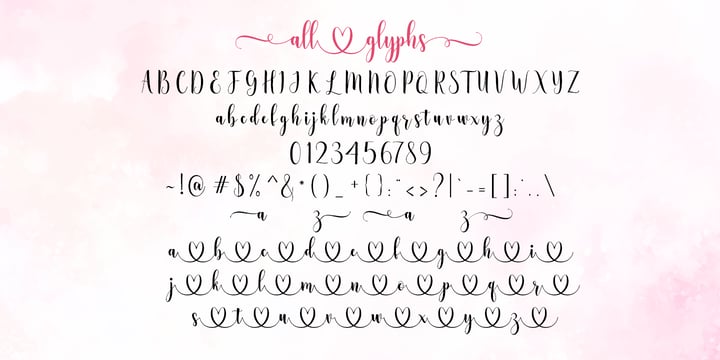 all glyphs
A B C D E F G H I J K L M N O P Q R S T U V W X Y Z
a b c d e f g h i j k l m n o p q r s t u v w x y z
0 1 2 3 4 5 6 7 8 9
~ ! @ # $ % ^ & * ( ) _ + { } : " < > ? | ` - = [ ] ; ' , . \
a z a z
a b c d e f g h i
j k l m n o p q r
s t u v w x y z